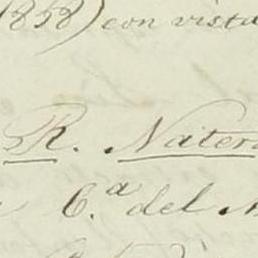 1858) con vista
R. Natera
C.ª del